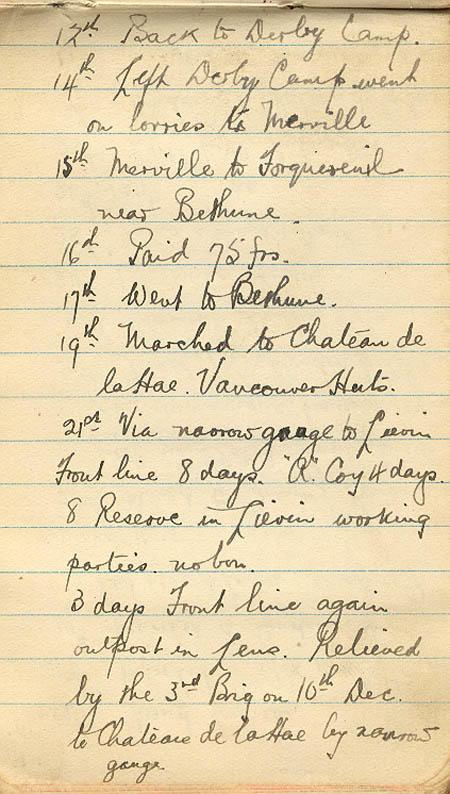 12th Back to Derby Camp.
14th Left Derby Camp went
on lorries to Merville
15th Merville to Forquereuil
near Bethune.
16th Paid 75 frs.
17th Went to Bethune.
19th Marched to Chateau de
la Hae. Vancouver Huts.
21st Via narrow gauge to Lievin
Front line 8 days. "A" Coy 4 days.
8 Reserve in Lievin working
parties. no bon.
3 days Front line again
outpost in Lens. Relieved
by the 3rd Brig on 10th Dec.
to Chateau de la Hae by narrow
gauge.